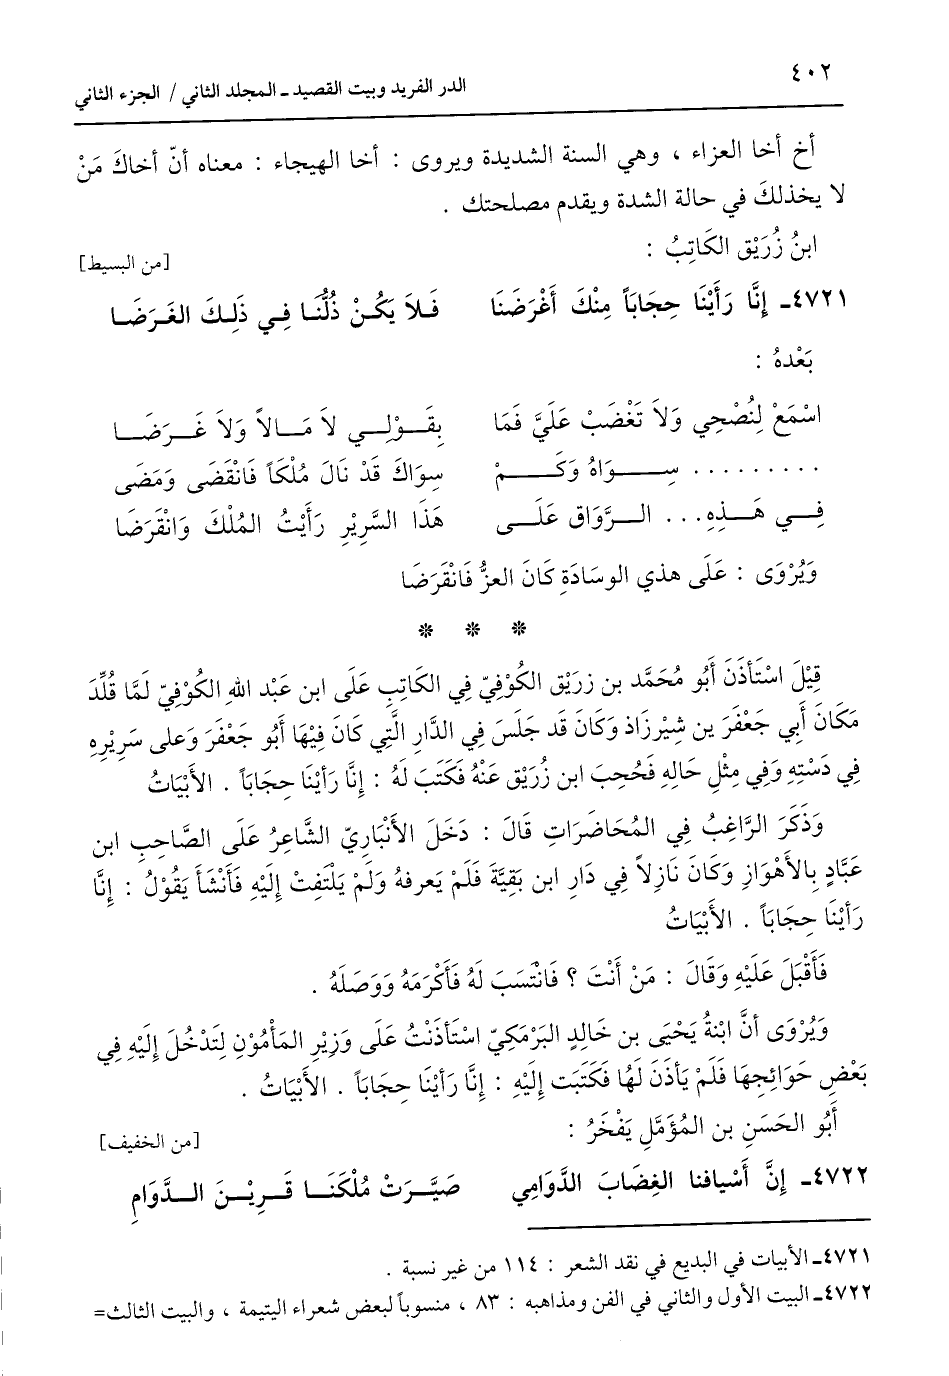 ٤٠٢
الدر الفريد وبيت القصيد ـ المجلد الثاني / الجزء الثاني
أخ أخا العزاء ، وهي السنة الشديدة ويروى : أخا الهيجاء : معناه أنّ أخاكَ مَنْ
لا يخذلكَ في حالة الشدة ويقدم مصلحتك .
ابنُ زُرَيْق الكَاتِبُ :
[من البسيط]
٤٧٢١ـ إِنَّا رَأَيْنَا حِجَابَاً مِنْكَ أَعْرَضَنَا فَلاَ يَكُنْ ذُلُّنَا فِي ذَلِكَ الغَرَضَا
بَعْدهُ :
اسْمَعْ لِنُصْحِي وَلاَ تَغْضَبْ عَلَيَّ فَمَا بِقَوْلِي لاَ مَالاً وَلاَ عَرَضَا
. . . . . . . . . سِوَاهُ وَكَمْ سِوَاكَ قَدْ نَالَ مُلْكَاً فَانْقَضَى وَمَضَى
فِي هَذِهِ . . . الرَّوَاق عَلَى هَذَا السَّرِيْرِ رَأَيْتُ المُلْكَ وَانْقَرَضَا
وَيُرْوَى : عَلَى هذي الوسَادَةِ كَانَ العزُّ فَانْقَرَضَا
* * *
قِيْلَ اسْتَأذَنَ أَبُو مُحَمَّد بن زريَق الكُوْفِيّ فِي الكَاتِبِ عَلَى ابن عَبْد اللهِ الكُوْفِيّ لَمَّا قُلِّدَ
مَكَانَ أَبِي جَعْفَرَ بن شِيْرزَاذ وَكَانَ قَد جَلَسَ فِي الدَّارِ الَّتِي كَانَ فِيْهَا أَبُو جَعْفَرَ وَعلى سَرِيْرِهِ
فِي دَسْتِهِ وَفِي مِثْلِ حَالِهِ فَحُجِبَ ابن زُرَيْق عَنْهُ فَكَتَبَ لَهُ : إِنَّا رَأَينَا حِجَابَاً . الأَبْيَاتُ
وَذَكَرَ الرَّاغِبُ فِي المُحَاضَرَاتِ قَالَ : دَخَلَ الأَنْبَارِيّ الشَّاعرُ عَلَى الصَّاحِبِ ابن
عَبَّادٍ بِالأَهْوَازِ وَكَانَ نَازِلاً فِي دَارِ ابن بَقِيَّةَ فَلَمْ يَعرفهُ وَلَمْ يَلْتَفِتْ إِلَيْهِ فَأَنْشَأَ يَقُوْلُ : إِنَّا
رَأَيْنَا حِجَابَاً . الأَبْيَاتُ
فَأَقْبَلَ عَلَيْهِ وَقَالَ : مَنْ أَنْتَ ؟ فَانْتَسَبَ لَهُ فَأَكْرَمَهُ وَوَصَلَهُ .
وَيُرْوَى أَنَّ ابْنَةُ يَحْيَى بن خَالِدٍ البَرْمَكِيّ اسْتَأذَنْتُ عَلَى وَزِيْرِ المَأْمُوْنِ لِتَدْخُلَ إِلَيْهِ فِي
بَعْضِ حَوَائِجِهَا فَلَمْ يَأذَن لَهَا فَكَتَبَت إِلَيْهِ : إِنَّا رَأَيْنَا حِجَابَاً . الأَبْيَاتُ .
أَبُو الحَسَنِ بن المُؤَمَّلِ يَفْخَرُ :
[من الخفيف]
٤٧٢٢ـ إِنَّ أَسْيافنا الغِضَابَ الدَّوَامِي صَيَّرَتْ مُلْكَنَا قَرِيْنَ الدَّوَامِ
٤٧٢١ـ الأبيات في البديع في نقد الشعر : ١١٤ من غير نسبة .
٤٧٢٢ـ البيت الأول والثاني في الفن ومذاهبه : ٨٣ ، منسوباً لبعض شعراء اليتيمة ، والبيت الثالث=